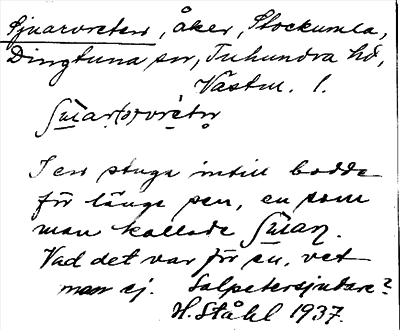 Sjuarvreten, åker, Stockumla,
Dingtuna sn, Tuhundra hd,
Västm. l.
ʃu̲ar(s)vre̲tạ
I en stuga intill bodde
för länge sen, en som
man kallade ʃu̲aṇ.
Vad det var för en, vet
man ej. Salpetersjudare?
H. Ståhl 1937.